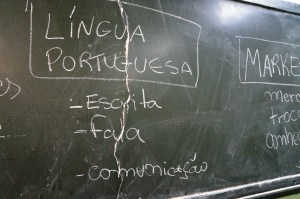 LÍNGUA
PORTUGUESA
- Escrita
- Fala
- comunicação
MARKE
merc
troca